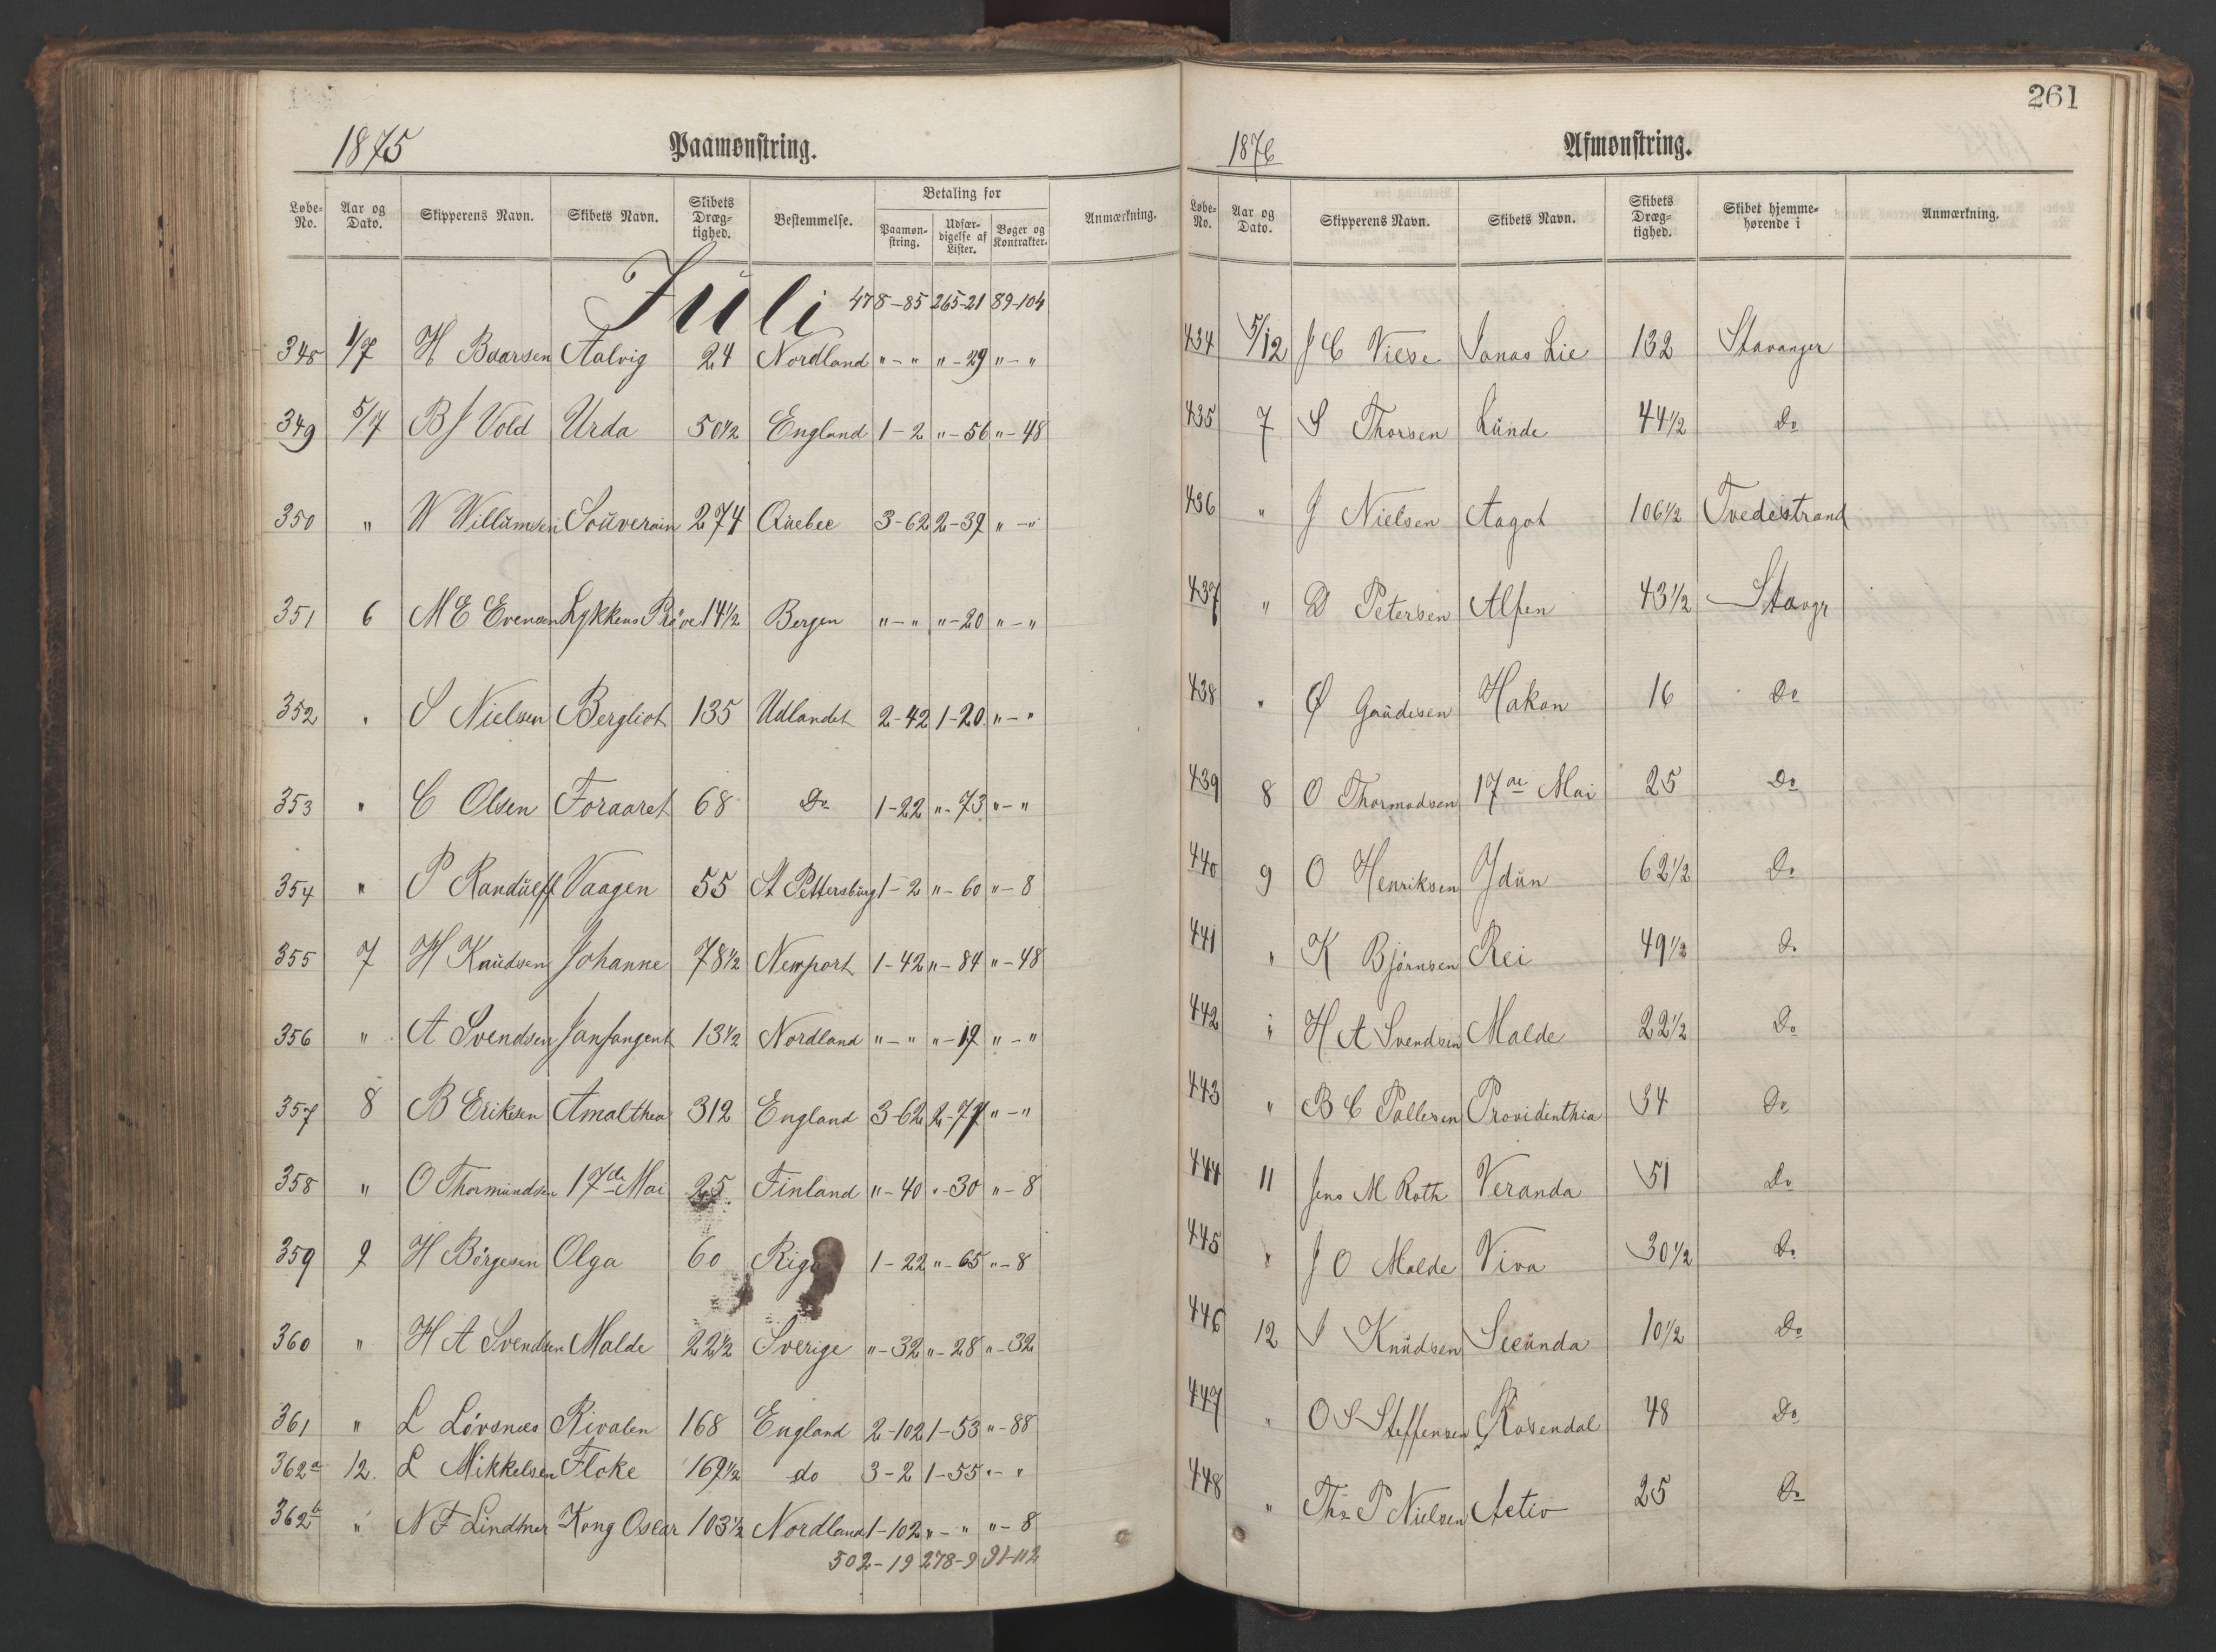 1875 Paamønstring.
Løbe-No. Aar og Dato. Skipperens Navn. Skibets Navn. Skibets Dræg-tighed. Bestemmelse. Betaling for Paamøn-string. Udfær-digelse af Lister. Bøger og Kontrakter. Anmærkning.
Juli 478-85 265-21 89-104
348 1/7 H Baarsen Aalvig 24 Nordland " - " " - 29 " - "
349 5/7 B J Vold Urda 50 1/2 England 1-2 " - 56 " - 48
350 " W Willumsen Souverain 274 Quebec 3-62 2-39 " - "
351 6 M E Evensen Lykkens Pröve 14 1/2 Bergen " - " " - 20 " - "
352 " S Nielsen Bergliot 135 Udlandet 2-42 1-20 " - "
353 " C Olsen Foraaret 68 Do 1-22 " - 73 " - "
354 " P Randulff Vaagen 55 St Pettersburg 1-2 " - 60 " - 8
355 7 H Knudsen Johanne 78 1/2 Newport 1-42 " - 84 " - 48
356 " A Svendsen 13 1/2 Nordland " - " " - 19 " - "
357 8 B Eriksen Amalthea 312 England 3-62 2-77 " - "
358 " O Thormundsen 17de Mai 25 Finland " - 40 " - 30 " - 8
359 9 H Börgesen Olga 60 Riga 1-22 " - 65 " - 8
360 " H A Svendsen Malde 22 1/2 Sverige " - 32 " - 28 " - 32
361 " L Lövsnæs Rivalen 168 England 2-102 1-53 " - 88
362a 12. L Mikkelsen Floke 169 1/2 do 3-2 1-55 " - "
362b " N F Lindtner Kong Oscar 103 1/2 Nordland 1-102 " - " " - 8
502-19 278-9 91-112
261
1876 Afmønstring.
Løbe-No. Aar og Dato. Skipperens Navn. Skibets Navn. Skibets Dræg-tighed. Skibet hjemme-hørende i Anmærkning.
434 5/12 J C Viese Jonas Lie 132 Stavanger
435 7 S Thorsen Lunde 44 1/2 Do
436 " J Nielsen Aagot 106 1/2 Tvedestrand
437 " D Petersen Alfen 43 1/2 Stavgr
438 " Ø Gaudesen Hakon 16 Do
439 8 O Thormodsen 17de Mai 25 Do
440 9 O Henriksen Ydun 62 1/2 Do
441 " K Björnsen Rei 49 1/2 Do
442 " H A Svendsen Malde 22 1/2 Do
443 " B C Pallesen Providinthia 34 Do
444 11 Jens M Roth Veranda 51 Do
445 " J O Malde Viva 30 1/2 Do
446 12 S Knudsen Secunda 10 1/2 Do
447 " O S Steffensen Rosendal 48 Do
448 " Ths P Nielsen Activ 25 Do